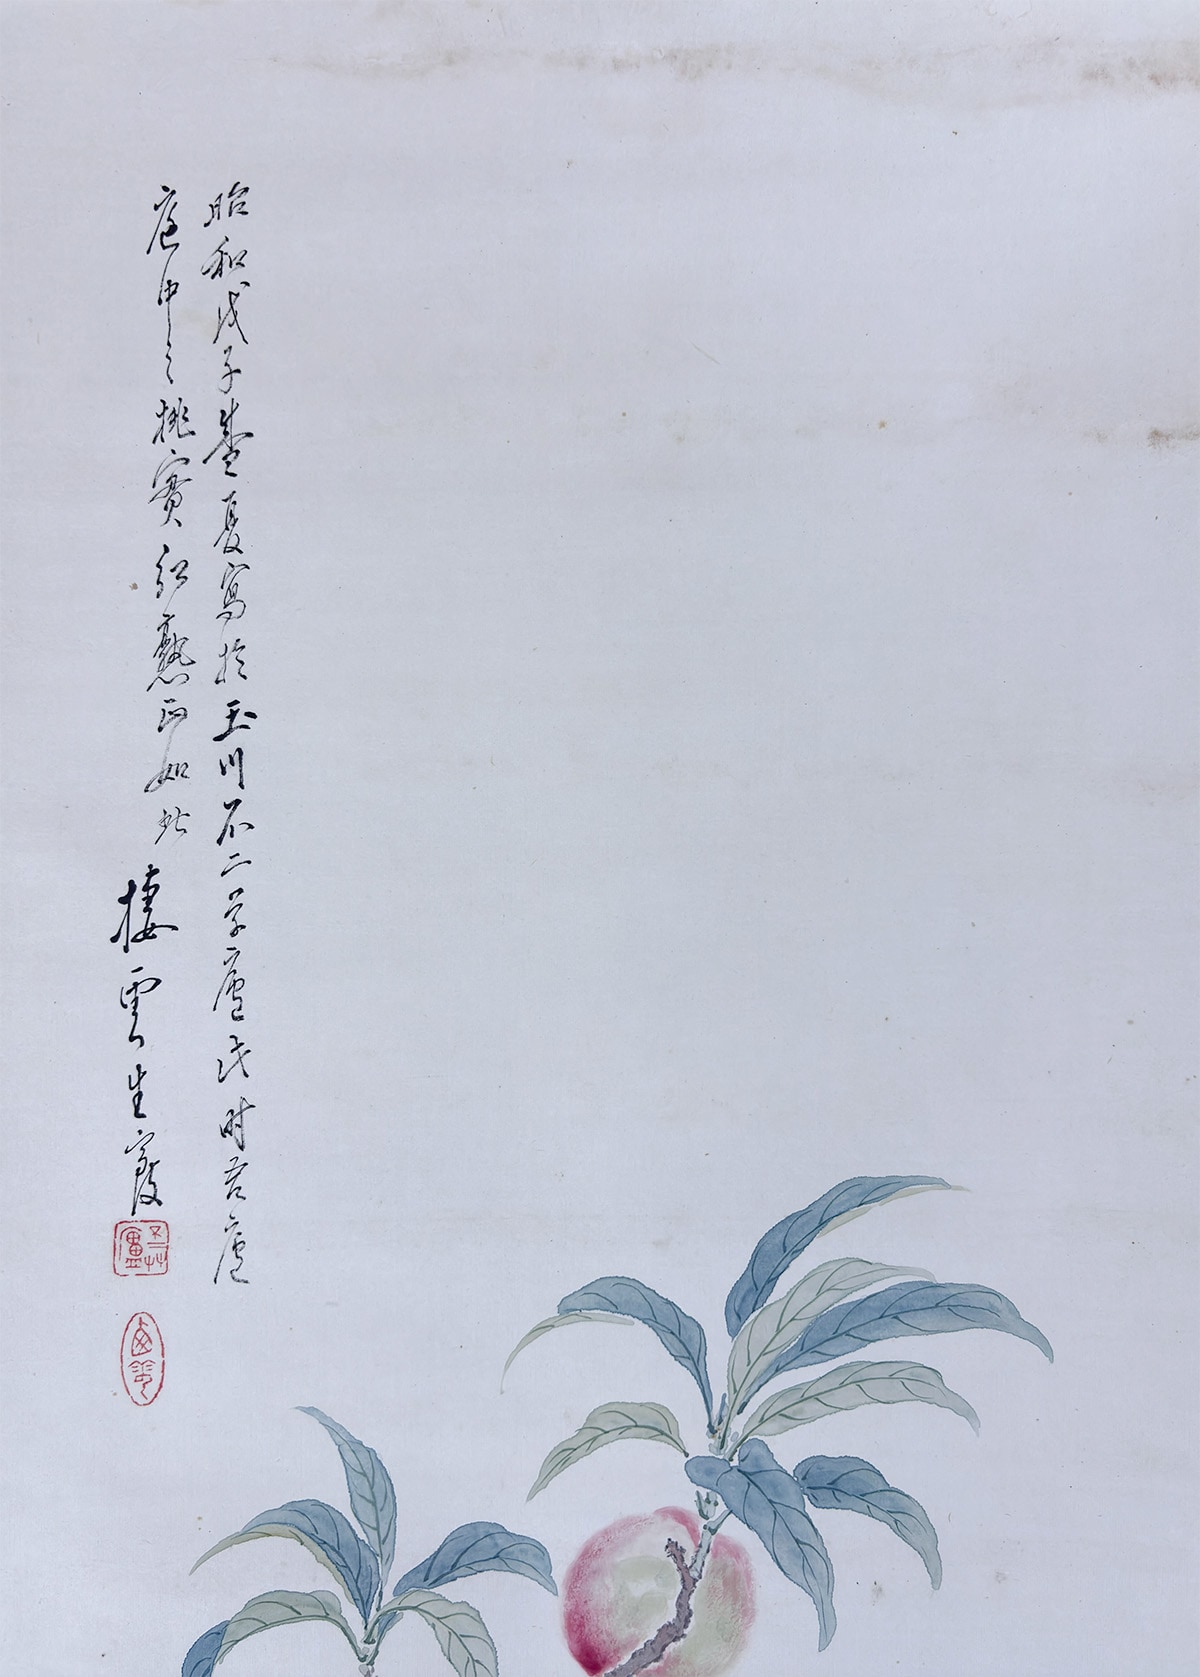 昭和戊子盛夏寫於玉川不二草廬此時吾廬
庭中之桃實紅熟正如此 棲雲生寫